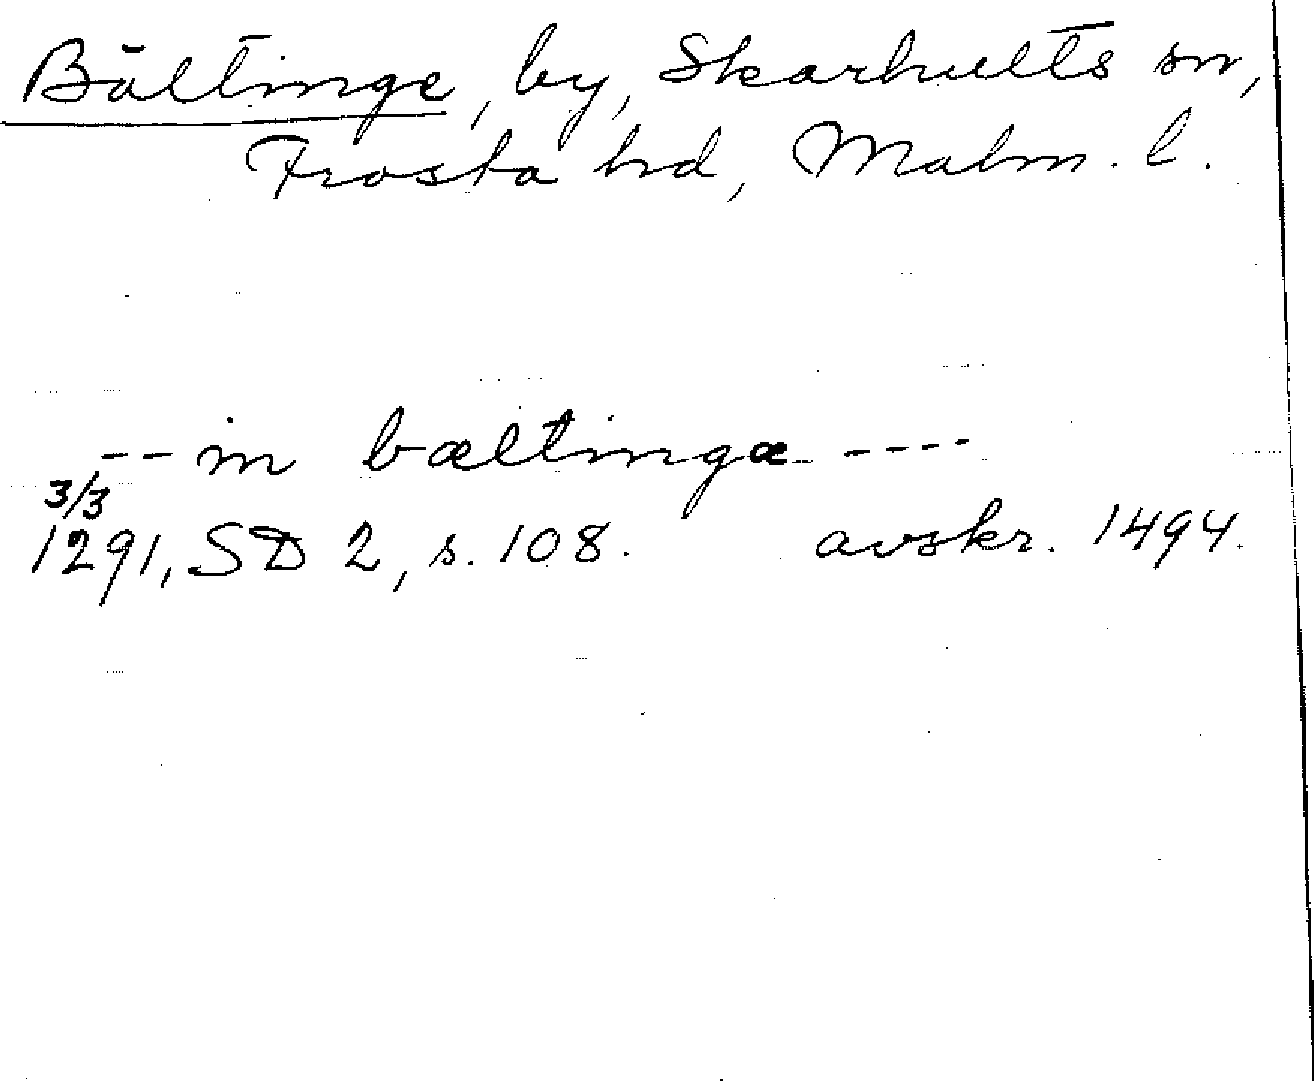 Bältinge, by, Skarhults sn,
Frosta hd, Malm. l.
-- in bæltingæ ----
3/3
1291, SD 2, s. 108. avskr. 1494.